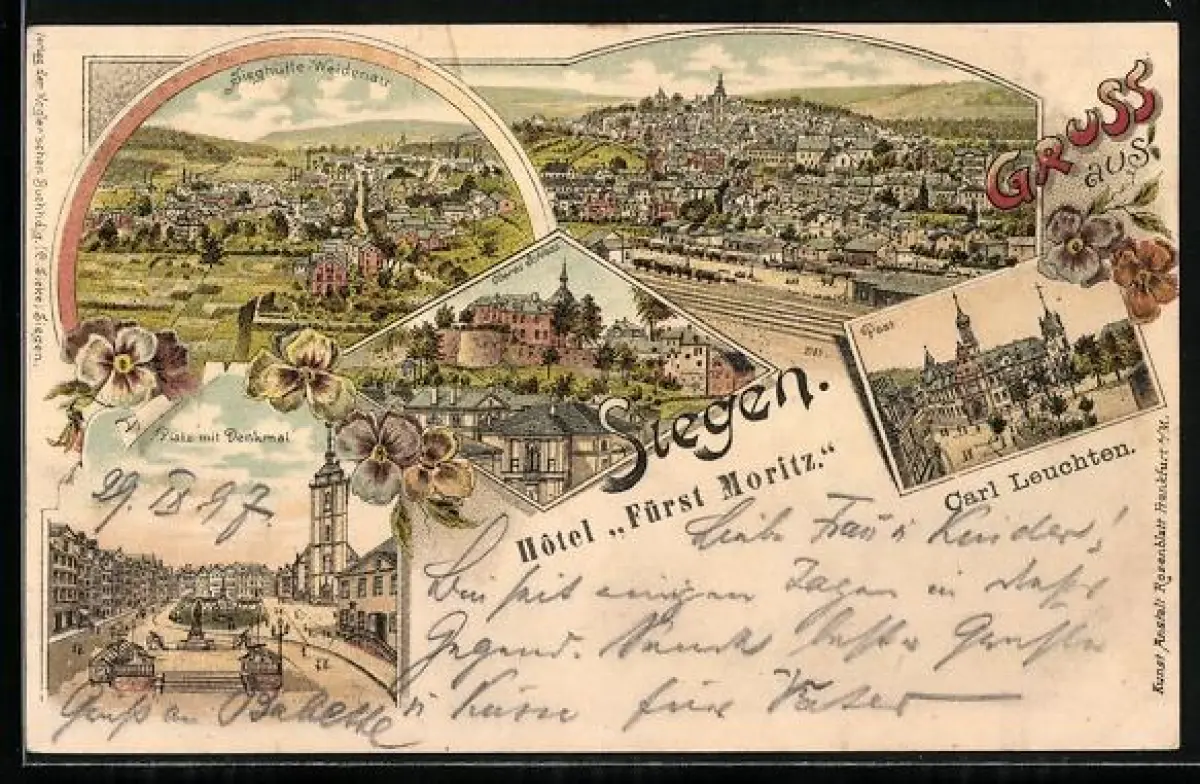 Sieghütte-Weidenau
GRUSS
aus
Oberes Schloss
Post
Siegen.
Carl Leuchten.
Hôtel „Fürst Moritz."
Platz mit Denkmal
29. IX 97.
Liebe Frau u Kinder!
Bin seit einigen Tagen in dieser
Gegend. Sende beste Grüße
u Küsse für Vater
Gruß an Babette
Verlag der Vogler'schen Buchhdlg. Siegen.
Kunst Anstalt Rosenblatt Frankfurt a/M.